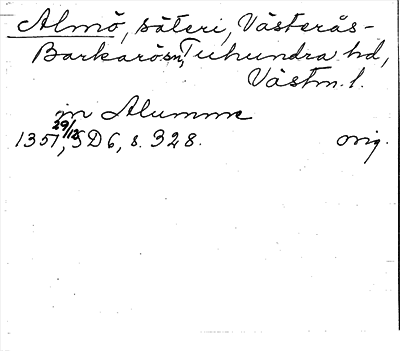 Almö, säteri, Västerås-
Barkarö sn, Tuhundra hd,
Västm. l.
in Alumme
1351 29/12, SD 6, s. 328. orig.